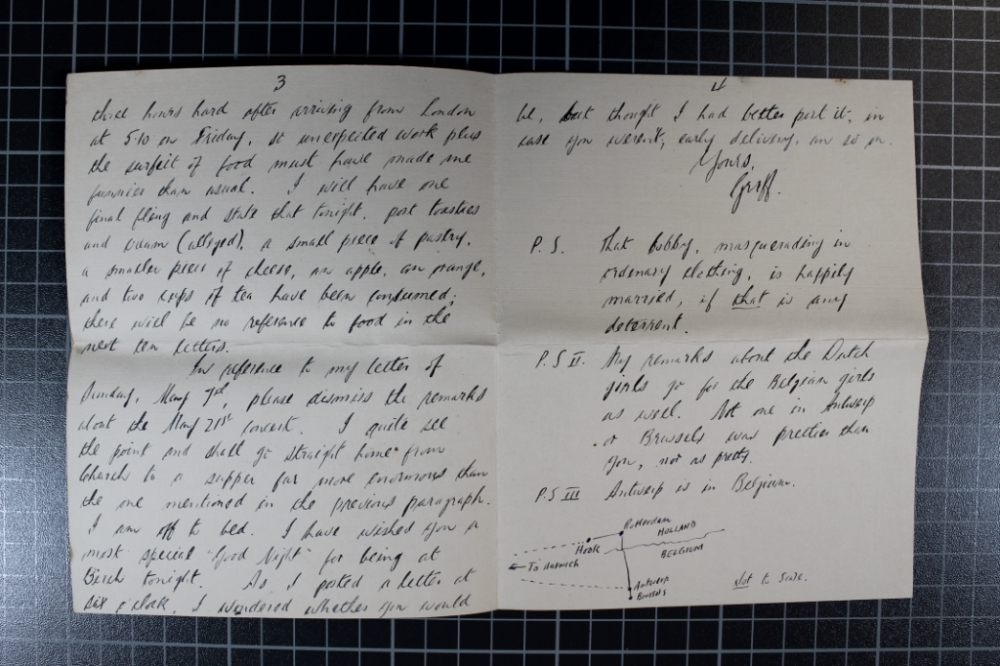 3
three hours hard after arriving from London
at 5.10 on Friday, so unexpected work plus
the surfeit of food must have made me
funnier than usual. I will have one
final fling and state that tonight, post toasties
and cream (alleged), a small piece of pastry,
a smaller piece of cheese, an apple, an orange,
and two cups of tea have been consumed;
there will be no reference to food in the
next ten letters.
In reference to my letter of
Sunday, May 7th, please dismiss the remarks
about the May 21st concert. I quite see
the point and shall go straight home from
Church to a supper far more enormous than
the one mentioned in the previous paragraph.
I am off to bed. I have wished you a
most special "Good Night" for being at
Birch tonight. As I posted a letter at
six o'clock, I wondered whether you would
4
be, but thought I had better post it, in
case you weren't, early delivery, an so on.
Yours,
Griff.
P.S. That bobby, masquerading in
ordinary clothing, is happily
married, if that is any
deterrent.
P.S II. My remarks about the Dutch
girls go for the Belgian girls
as well. Not one in Antwerp
or Brussels was prettier than
you, not as pretty.
P.S III Antwerp is in Belgium.
Rotterdam
HOLLAND
Hook
BELGIUM
To Harwich
Antwerp
Brussels
Not to Scale.